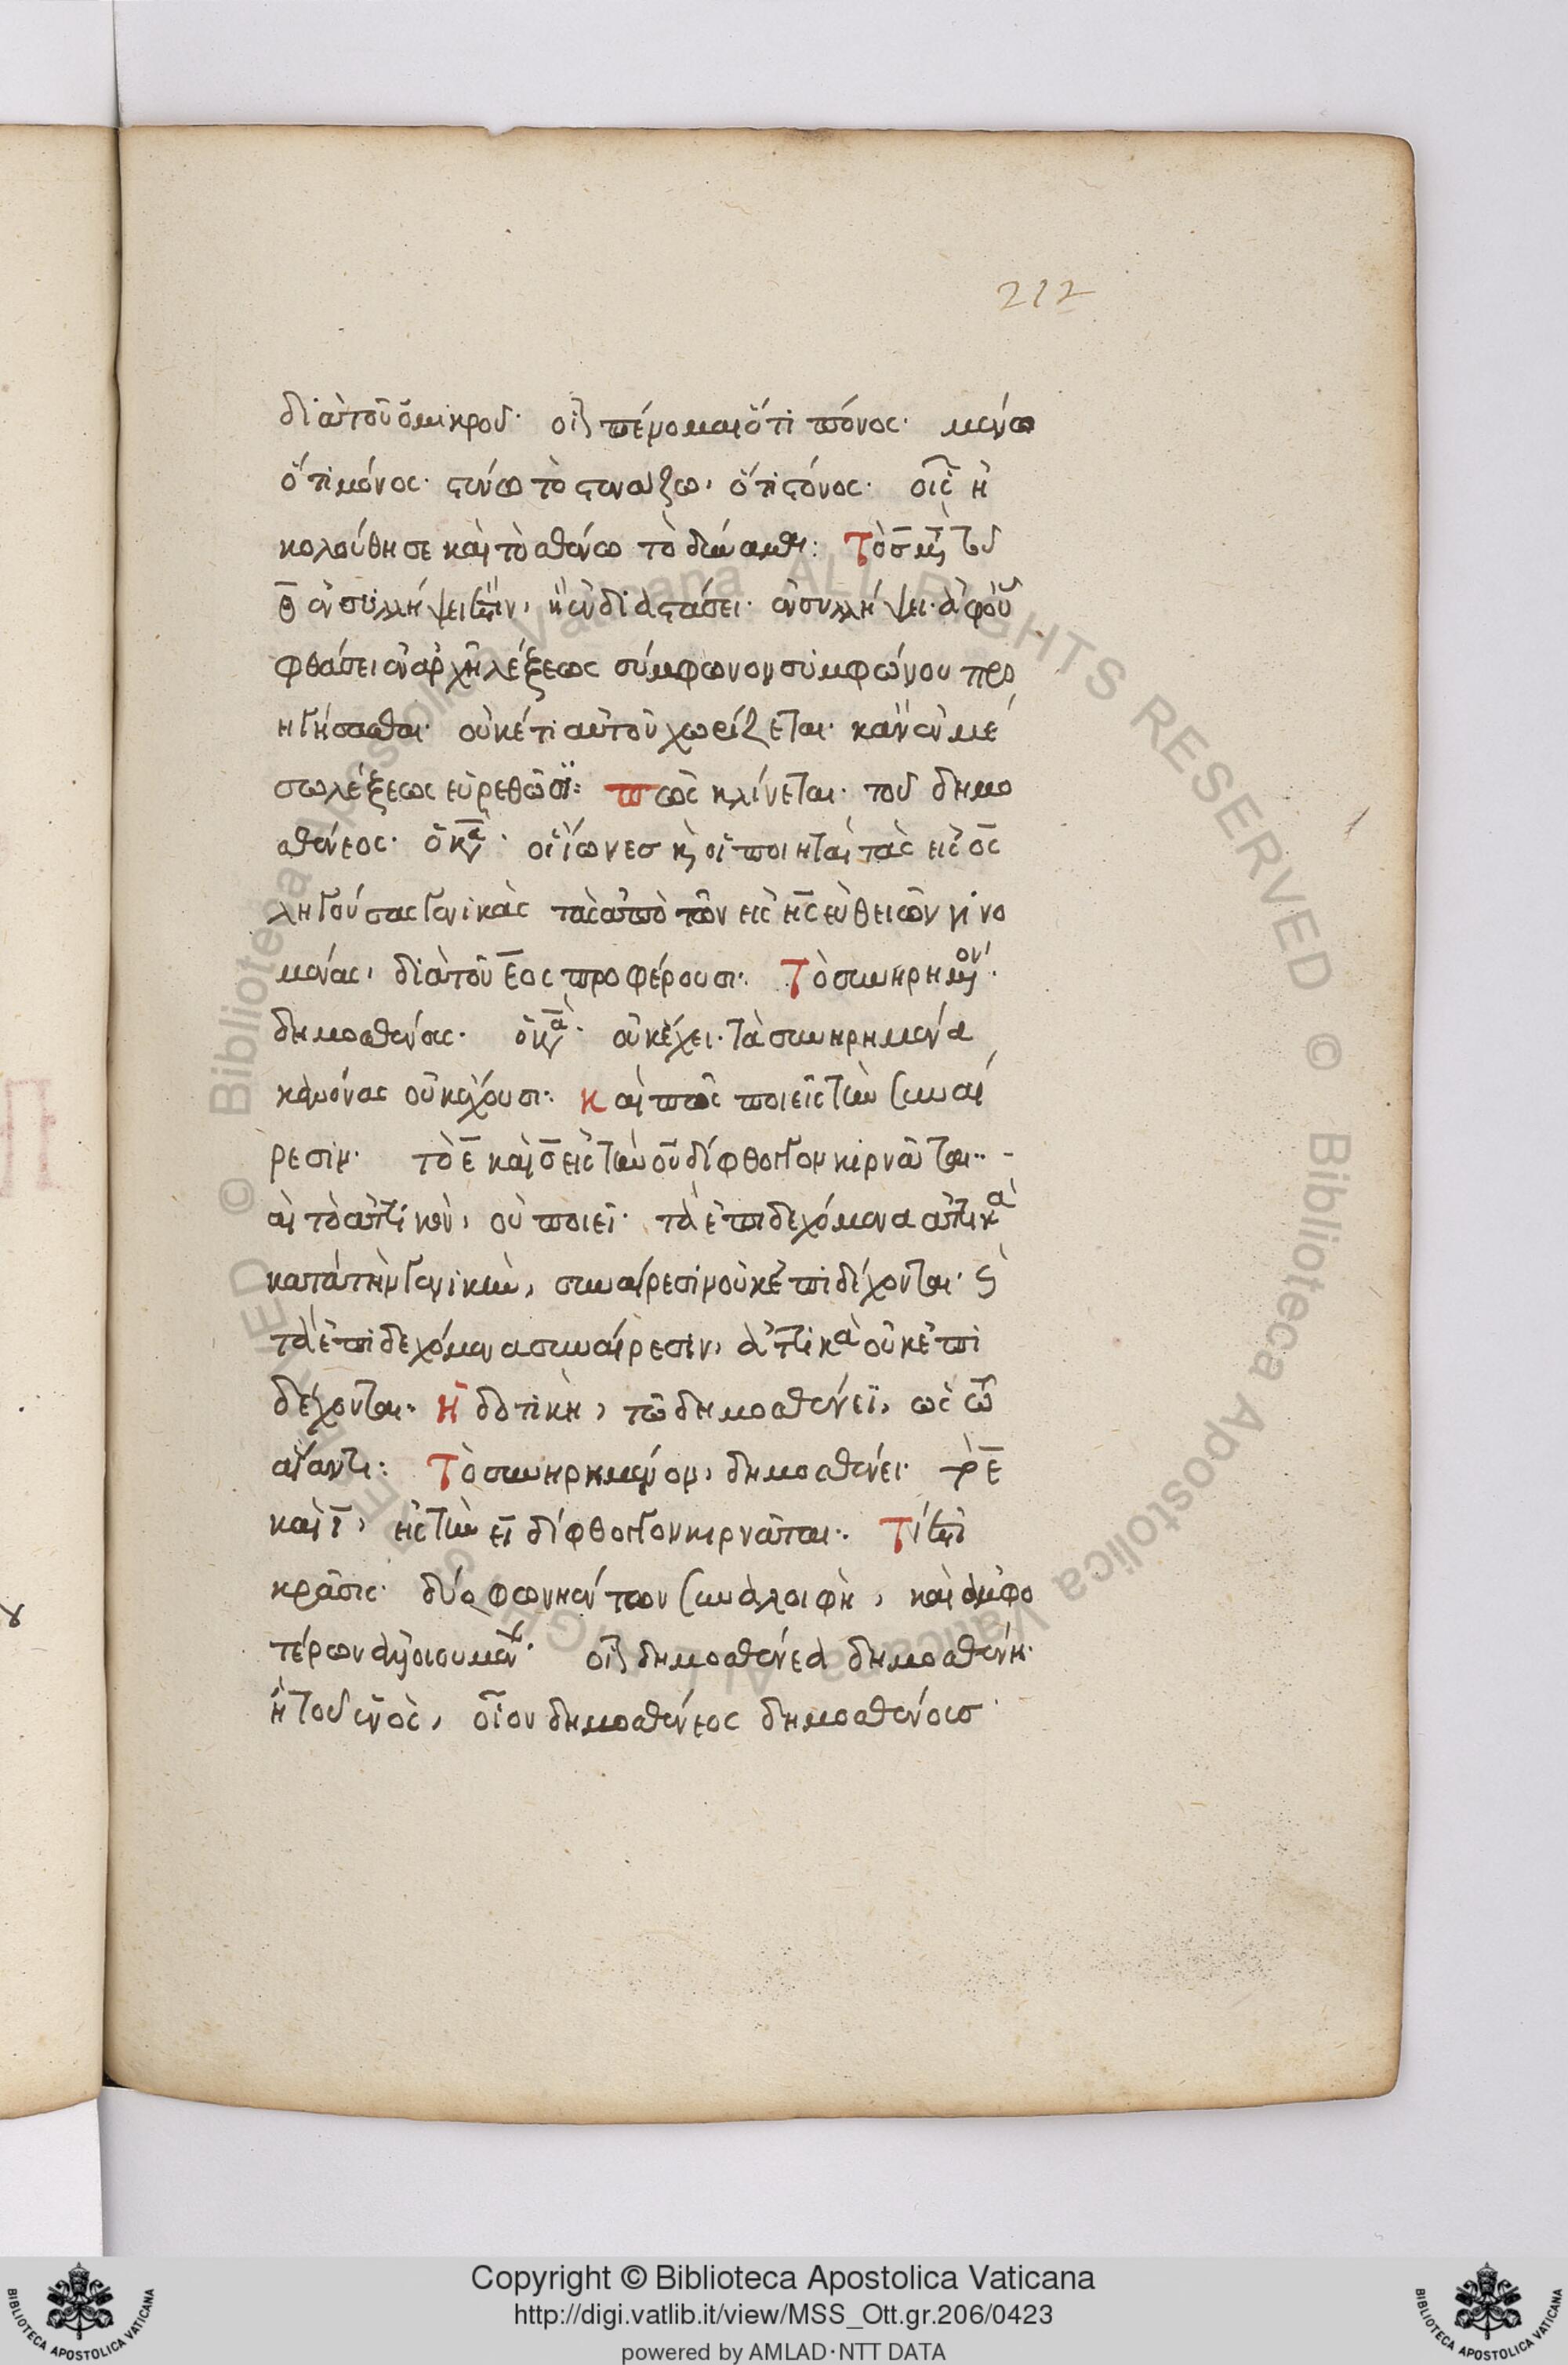 212
διὰ τοῦ ὀμικροῦ· οἷον πένομαι ὅτι πόνος· μένω
ὅτι μόνος· στένω τὸ στενάζω, ὅτι στόνος· οἷς ἠ
κολούθησε καὶ τὸ σθένω τὸ δύναμαι: Τὸ σ μετὰ τοῦ
θ ἐν συλλήψει ἐστὶν, ἢ ἐν διαστάσει· ἐν συλλήψει· ἀφ' οὗ
φθάσει ἐν ἀρχῆ λέξεως σύμφωνον συμφώνου προ
ηγήσασθαι· οὐκέτι αὐτοῦ χωρίζεται· κἂν ἐν μέ
σω λέξεως εὑρεθῶσι: πῶς κλίνεται· τοῦ δημο
σθένεος· ὁ κανὼν· οἱ ἴωνεσ καὶ οἱ ποιηταὶ τὰς εἰς ος
ληγούσας γενικὰς τὰς ἀπὸ τῶν εἰς ης εὐθειῶν γινο
μένας, διὰ τοῦ εος προφέρουσι: Τὸ συνηρημένον·
δημοσθένους· ὁ κανὼν· οὐκ ἔχει· τὰ συνηρημένα
κανόνας οὐκ ἔχουσι: Καὶ πῶς ποιεῖς τὴν συναί
ρεσιν· τὸ ε καὶ ο εἰς τὴν ου δίφθογγον κιρνᾶται:-
αι τὸ ἀττικὸν, οὐ ποιεῖ· τὰ ἐπιδεχόμενα ἀττικὰ
κατὰ τὴν γενικὴν, συναίρεσιν οὐκ ἐπιδέχονται· καὶ
τὰ ἐπιδεχόμενα συναίρεσιν, ἀττικὰ οὐκ ἐπι
δέχονται: Η δοτικὴ, τῶ δημοσθένεϊ, ὡς τῶ
αἴαντι: Τὸ συνηρημένον, δημοσθένει· τὸ ε
καὶ ι, εἰς τὴν ει δίφθογγον κιρνᾶται: Τί ἐστὶ
κρᾶσις· δύο φωνηέντων συναλοιφὴ, καὶ ἀμφο
τέρων ἀλλοιουμένων· οἷον δημοσθένεα δημοσθένη·
ἢ τοῦ ἑνὸς, οἷον δημοσθένεος δημοσθένουσ·
Copyright © Biblioteca Apostolica Vaticana
http://digi.vatlib.it/view/MSS_Ott.gr.206/0423
powered by AMLAD·NTT DATA